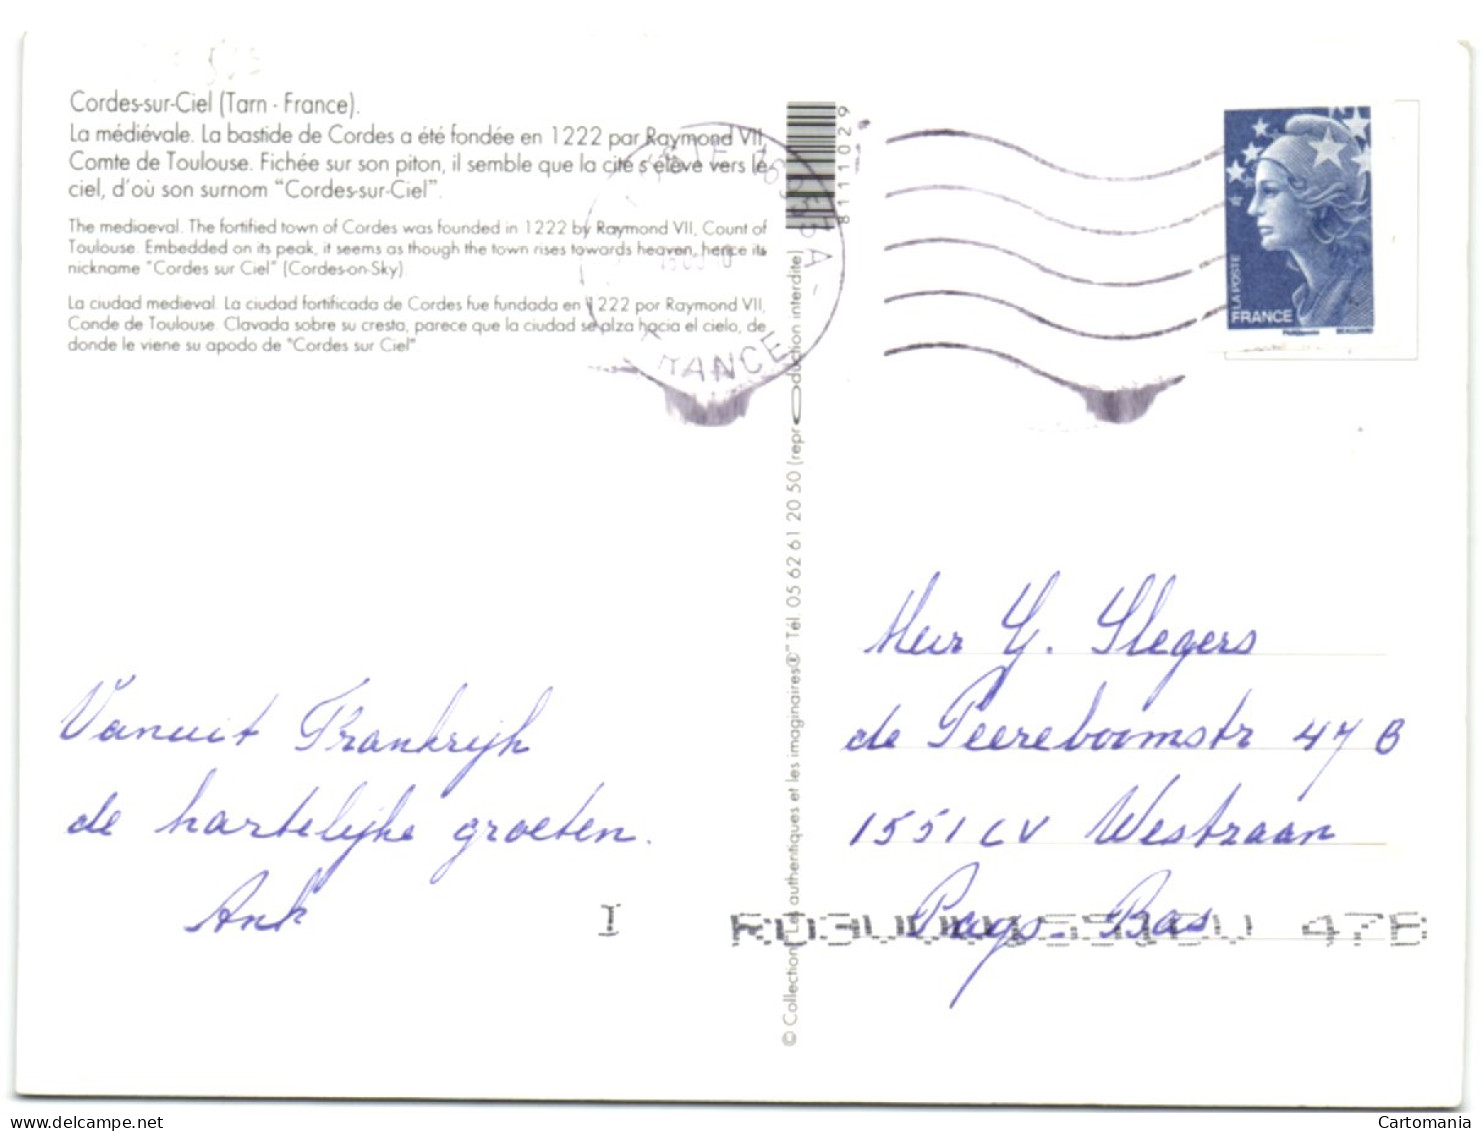 Cordes-sur-Ciel (Tarn - France).
La médiévale. La bastide de Cordes a été fondée en 1222 par Raymond VII,
Comte de Toulouse. Fichée sur son piton, il semble que la cité s'élève vers le
ciel, d'où son surnom "Cordes-sur-Ciel".
The mediaeval. The fortified town of Cordes was founded in 1222 by Raymond VII, Count of
Toulouse. Embedded on its peak, it seems as though the town rises towards heaven, hence its
nickname "Cordes sur Ciel" (Cordes-on-Sky).
La ciudad medieval. La ciudad fortificada de Cordes fue fundada en 1222 por Raymond VII,
Conde de Toulouse. Clavada sobre su cresta, parece que la ciudad se alza hacia el cielo, de
donde le viene su apodo de "Cordes sur Ciel"
Vanuit Frankrijk
de hartelijke groeten.
Ank
I
© Collection Les authentiques et les imaginaires®™ Tél. 05 62 61 20 50 (reproduction interdite)
81111029
16953A
FRANCE
LA POSTE
FRANCE
Heer G. Slegers
de Peereboomstr 47 B
1551 CV Westzaan
Pays-Bas
47B
Cartomania